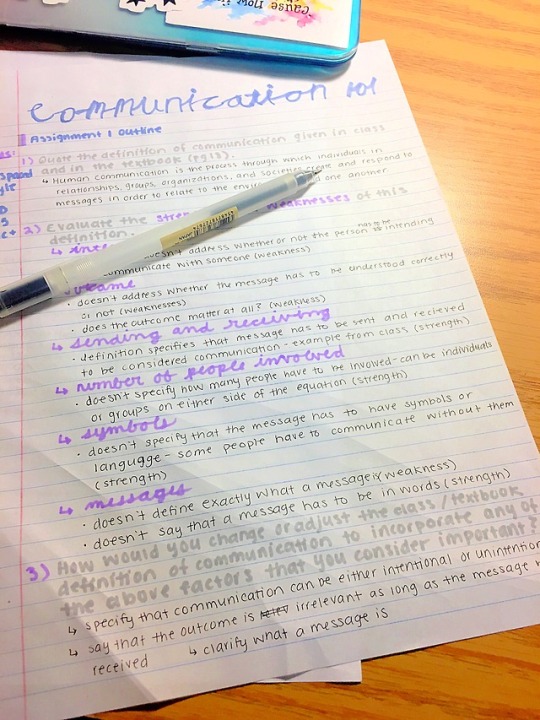 'cause now i
communication 101
Assignment 1 outline
1) Quote the definition of communication given in class
and in the textbook (pg15).
↳ Human communication is the process through which individuals in
relationships, groups, organizations, and societies create and respond to
messages in order to relate to the one another
2) Evaluate the weaknesses of this
definition.
doesn't address whether or not the person has to be intending
communicate with someone (weakness)
· doesn't address whether the message has to be understood correctly
or not (weaknesses)
· does the outcome matter at all? (weakness)
↳ sending and receiving
· definition specifies that message has to be sent and recieved
to be considered communication - example from class (strength)
↳ number of people involved
· doesn't specify how many people have to be involved - can be individuals
or groups on either side of the equation (strength)
↳ symbols
· doesn't specify that the message has to have symbols or
langugge - some people have to communicate without them
(strength)
↳ messages
· doesn't define exactly what a message is (weakness)
· doesn't say that a message has to be in words (strength)
3) How would you change or adjust the class/textbook
definition of communication to incorporate any of
the above factors that you consider important?
↳ specify that communication can be either intentional or unintention
↳ say that the outcome is irrelevant as long as the message
received ↳ clarify what a message is